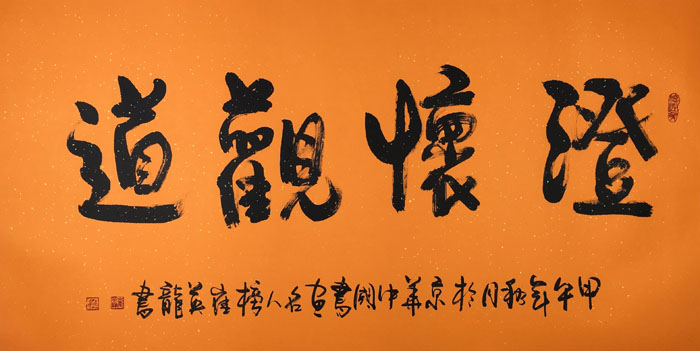 澄懷觀道
甲午年秋月於京華中國書畫名人樓崔英龍書